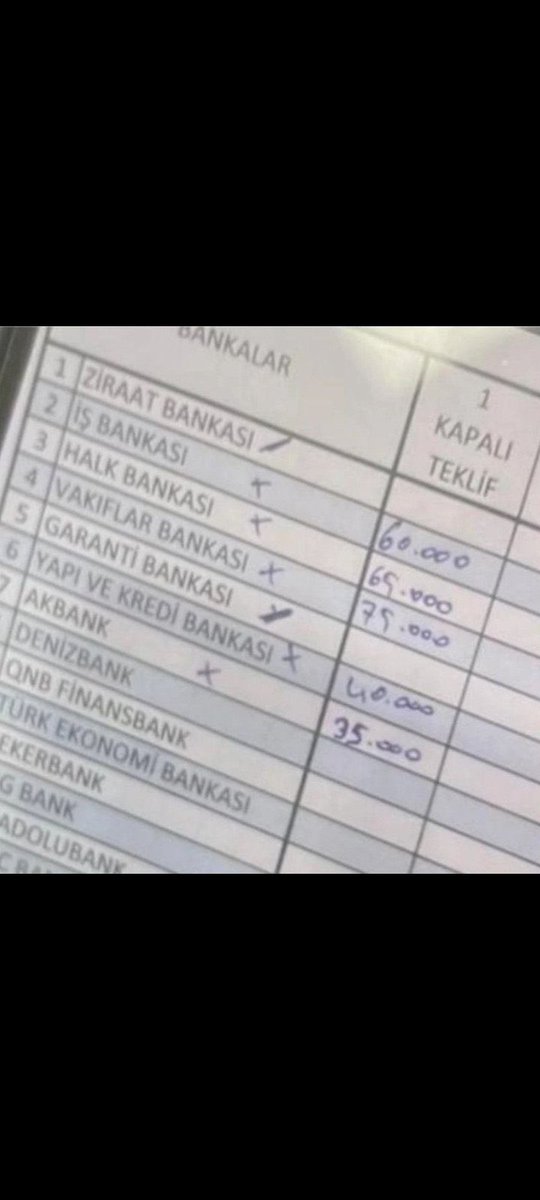 BANKALAR
1
KAPALI
TEKLİF
1 ZİRAAT BANKASI
2 İŞ BANKASI + 60.000
3 HALK BANKASI + 65.000
4 VAKIFLAR BANKASI + 75.000
5 GARANTİ BANKASI
6 YAPI VE KREDİ BANKASI + 40.000
7 AKBANK + 35.000
DENİZBANK
QNB FİNANSBANK
TÜRK EKONOMİ BANKASI
EKERBANK
G BANK
ADOLUBANK